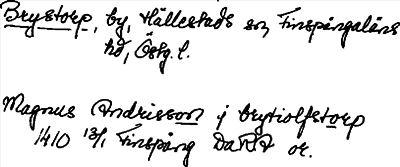 Brystorp, by, Hällestads sn, Finspångaläns
hd, Östg. l.
Magnus Andrisson j brytiolfstorp
1410 13/1 Finspång DaRA or.